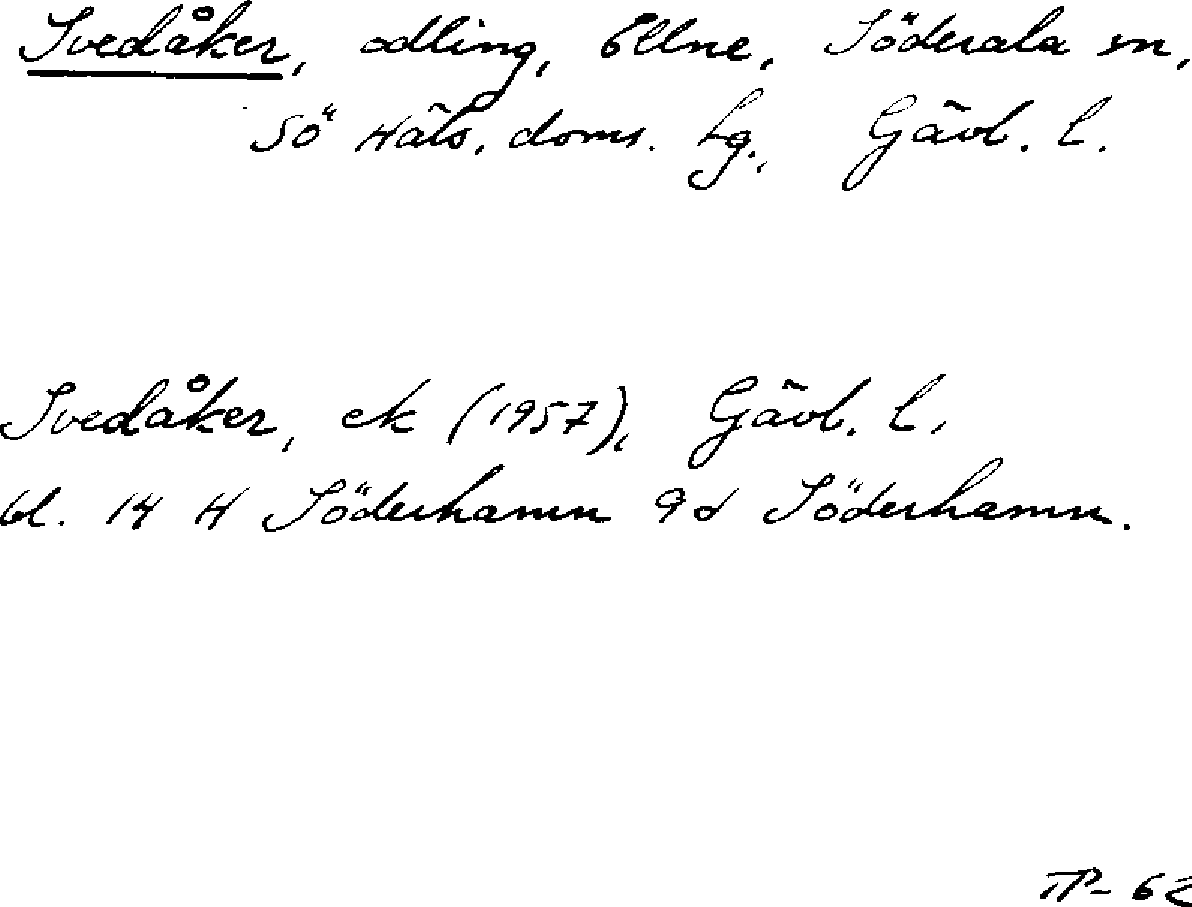 Svedåker, odling, Ellne, Söderala sn,
Sö Häls. doms. Lg., Gävl. l.
Svedåker, ek (1957), Gävl. l,
bl. 14 H Söderhamn 9d Söderhamn.
TP- 62